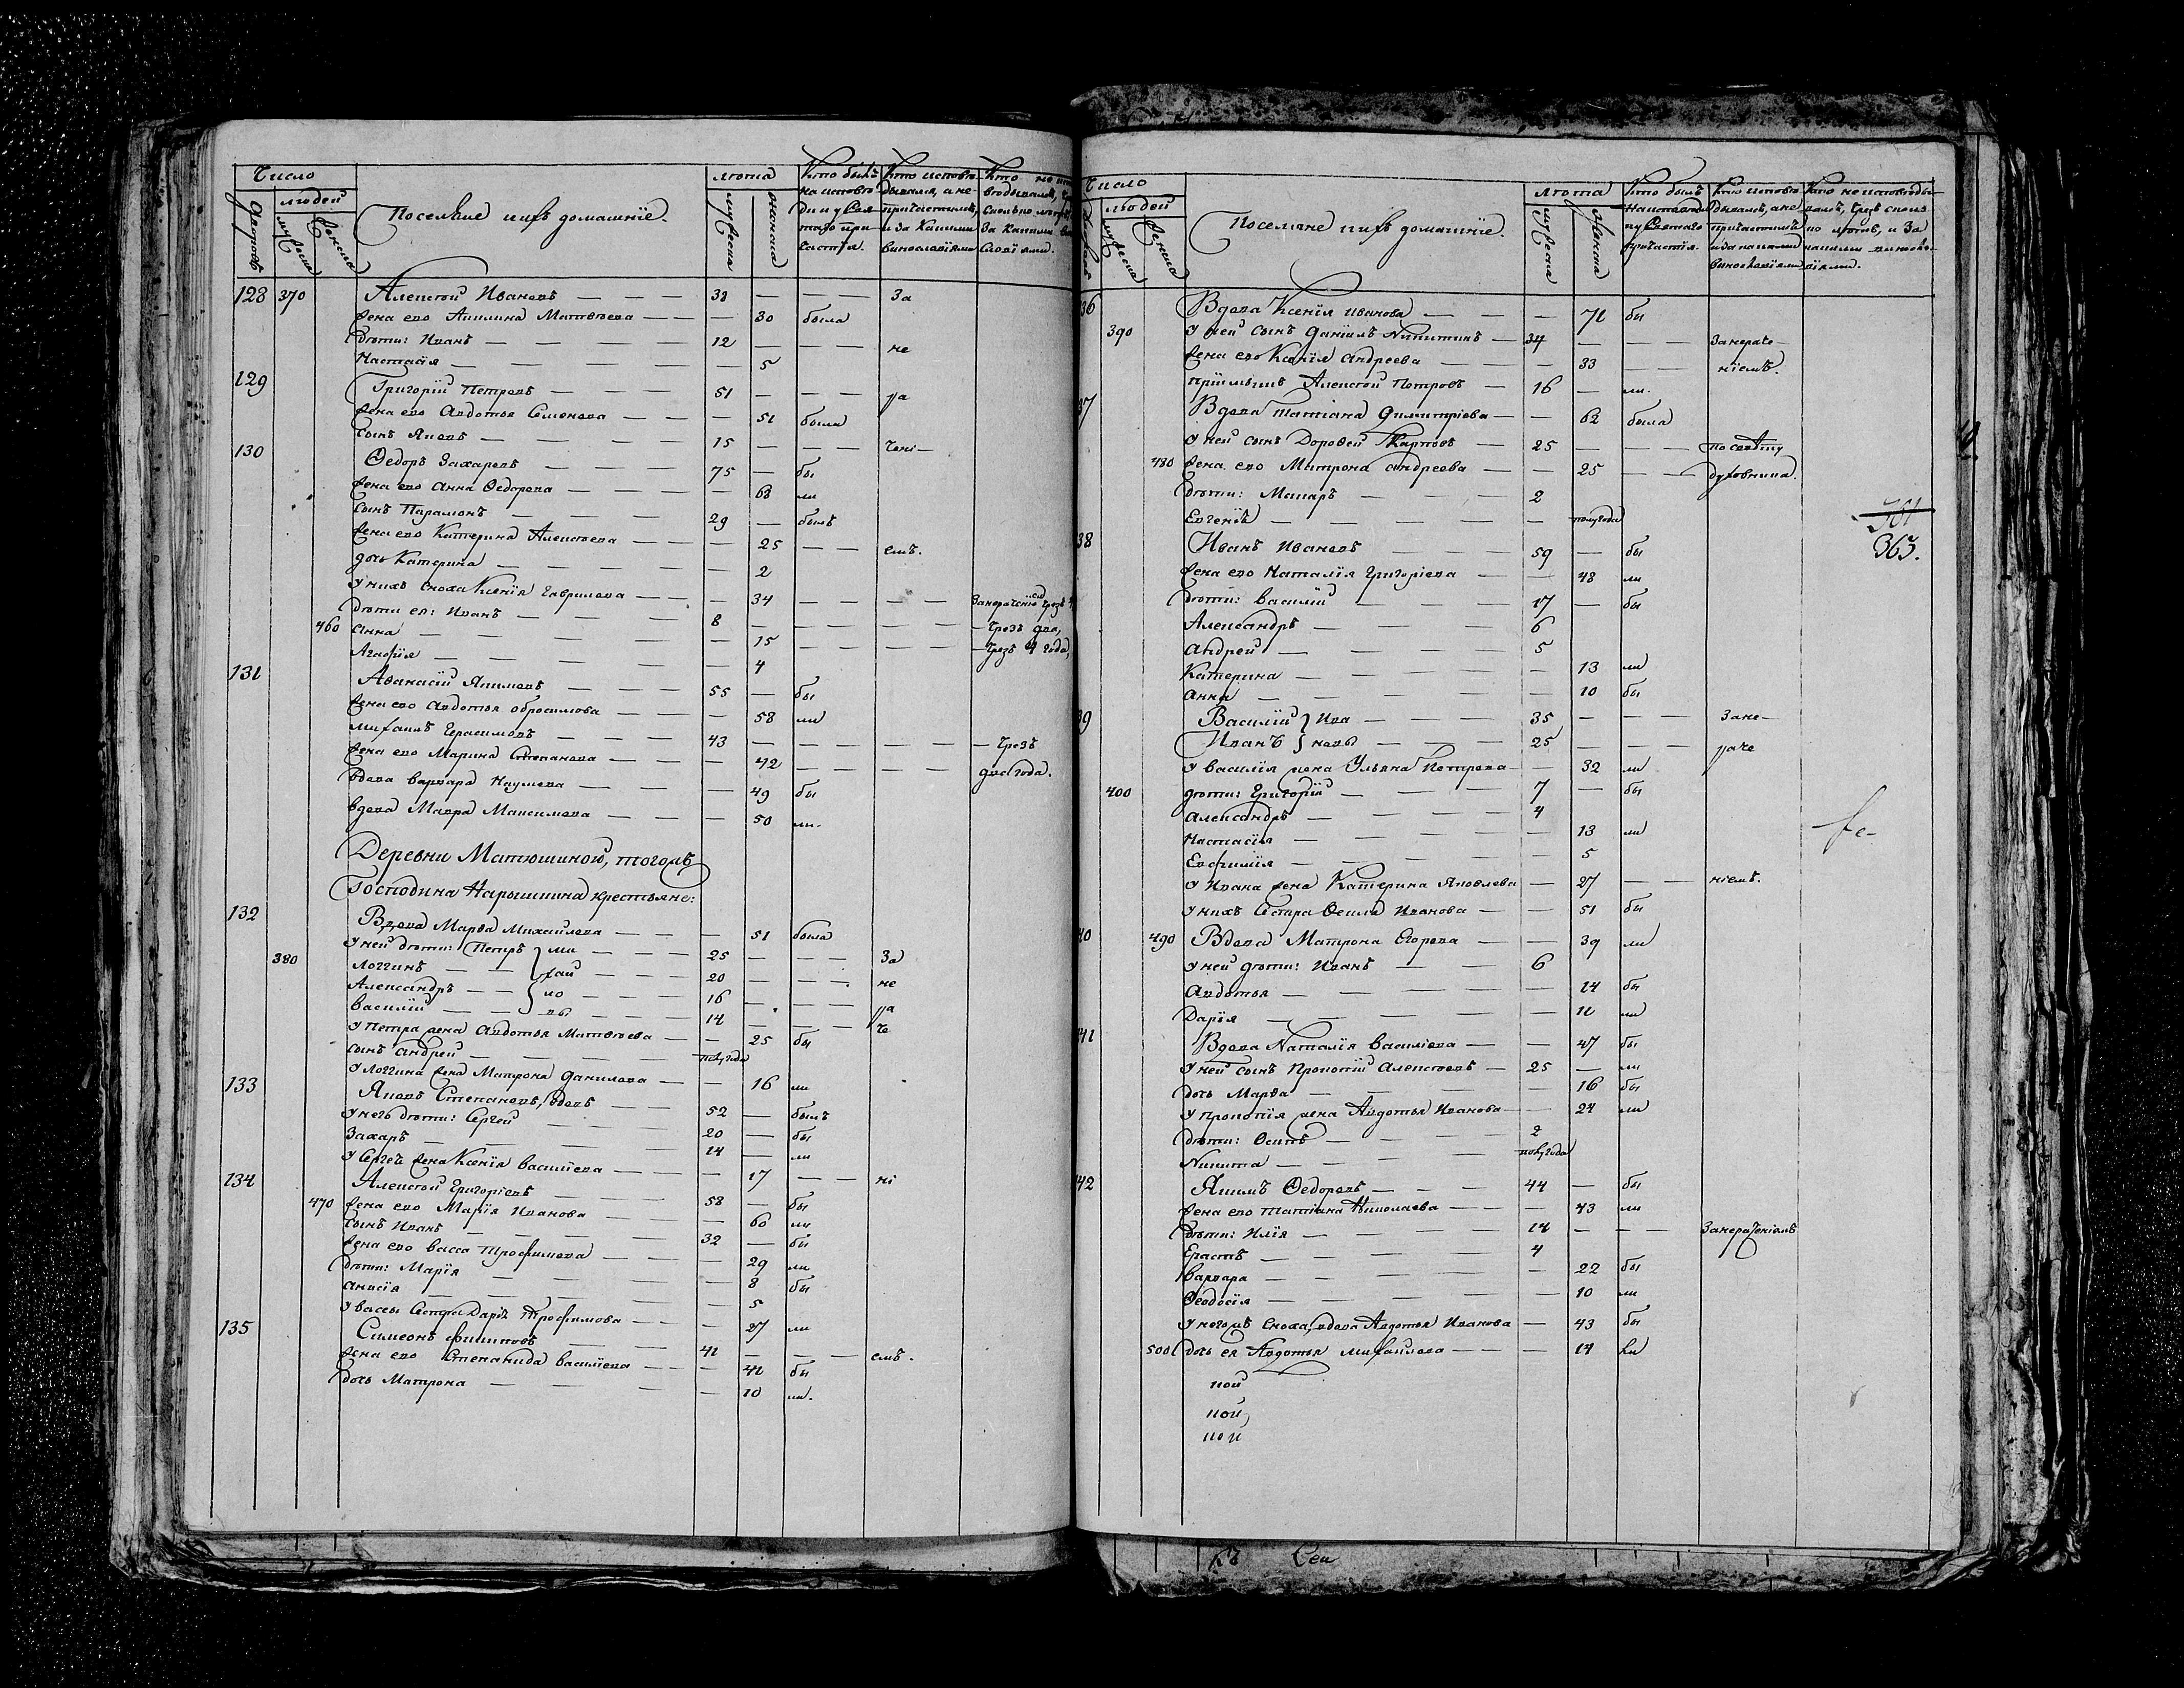 Число
людей
Дворовъ
мужеска
женска
Поселяне и ихъ домашнїе.
лѣта
мужеска
женска
Кто былъ на исповѣди и у Святаго причастїя.
Кто исповѣдывался, а не причастился, и за какими винословїями
128 370 Алексѣй Ивановъ — — — 38 — — — За
жена его Акилина Матвѣева — — — 30 была
дѣти: Иванъ — — — 12 — — — не
Настасїя — — — — 5
129 Григорїй Петровъ — — — 51 — — — ра
жена его Авдотья Семенова — — — 51 была
сынъ Яковъ — — — 15 — — — ченї-
130 Ѳедоръ Захаровъ — — — 75 — бы
жена его Анна Ѳедорова — — — 68 ли
сынъ Парамонъ — — — 29 — былъ
жена его Катерина Алексѣева — — — 25 — — емъ.
дочь Катерина — — — — 2
у нихъ сноха Ксенїя Гаврилова — — — 34 — — —
дѣти ея: Иванъ — — — 8 — — — — чрезъ два,
460 Анна — — — — 15 — — — — чрезъ 4 года,
Агафїя — — — — 4
131 Аѳанасїй Якимовъ — — — 55 — бы
жена его Авдотья Обросимова — — — 58 ли
Михаилъ Герасимовъ — — — 43 — — — — чрезъ
жена его Марина Степанова — — — 42 — — — — два года.
вдова Варвара Наумова — — — 49 бы
вдова Мавра Максимова — — — 50 ли.
Деревни Матюшиной, тогожъ
Господина Нарышкина крестьяне:
132 Вдова Марѳа Михайлова — — — 51 была
380 у ней дѣти: Петръ } ми — — — 25 — — — За
Логгинъ — — } хай — — — 20 — — — не
Александръ — — } ло — — — 16 — — — ра
Василїй — — } вы — — — 14 — — — че
у Петра жена Авдотья Матвѣева — — — 25 бы
сынъ Андрей — — — полугода
у Логгина жена Матрона Данилова — — — 16 ли
133 Яковъ Степановъ, вдовъ — — 52 — былъ
у него дѣти: Сергей — — — 20 — бы
Захаръ — — — 14 — ли
у Сергея жена Ксенїя Василїева — — — 17 — — нї
134 Алексѣй Григорїевъ — — — 58 — бы
470 жена его Марїя Иванова — — — 60 ли
сынъ Иванъ — — — 32 — бы
жена его Васса Трофимова — — — 29 ли
дѣти: Марїя — — — 8 бы
Анисїя — — — — 5
у Вассы сестра Дарїя Трофимова — — — 27 ли
135 Симеонъ Филиповъ — — 41 — — — емъ.
жена его Степанида Василїева — — — 41 бы
дочь Матрона — — — — 10 ли.
Число
людей
мужеска
женска
Поселяне и ихъ домашнїе.
лѣта
мужеска
женска
Кто былъ на исповѣди и у Святаго причастїя.
Кто исповѣдывался, а не причастился и за какими винословїями
Кто не исповѣдывался, чрезъ сколько лѣтъ, и за какими винословїями.
36 Вдова Ксенїя Иванова — — — 71 бы
390 у ней сынъ Данїилъ Никитинъ — 34 — — — За нераче-
жена его Ксенїя Андреева — — — 33 — — нїемъ.
прїимышъ Алексѣй Петровъ — 16 — ли.
37 Вдова Татїана Димитрїева — — 62 была
у ней сынъ Дороѳей Карповъ — 25 — — — по совѣту
480 жена его Матрона Андреева — — 25 — — духовника.
дѣти: Макаръ — — — 2
Евгенїя — — — — полугода
38 Иванъ Ивановъ — — — 59 — бы
жена его Наталїя Григорїева — — 48 ли
дѣти: Василїй — — — 17 — бы
Александръ — — — 6
Андрей — — — 5
Катерина — — — — 13 ли
Анна — — — — 10 бы
39 Василїй } Ива — — — 35 — — — За не-
Иванъ } новы — — — 25 — — — раче
у Василїя жена Ульяна Петрова — — 32 ли
400 дѣти: Григорїй — — — 7 — бы
Александръ — — — 4
Настасїя — — — — 13 ли
Евфимїя — — — — 5
у Ивана жена Катерина Яковлева — 27 — — нїемъ.
у нихъ сестра Ѳекла Иванова — — 51 бы
40 490 Вдова Матрона Егорова — — 39 ли
у ней дѣти: Иванъ — — 6
Авдотья — — — — 14 бы
Дарїя — — — — 11 ли
41 Вдова Наталїя Василїева — — 47 бы
у ней сынъ Прокопїй Алексѣевъ — 25 — ли
дочь Марѳа — — — 16 бы
у Прокопїя жена Авдотья Иванова — — 24 ли
дѣти: Осипъ — — — 2
Никита — — — полугода
42 Якимъ Ѳедоровъ — — — 44 — бы
жена его Татїана Николаева — — — 43 ли
дѣти: Илїя — — 14 — — — За нераченїемъ
Ерастъ — — — 4
Варвара — — — — 22 бы
Ѳеодосїя — — — — 10 ли
у негожъ сноха, вдова Авдотья Иванова — 43 бы
500 дочь ея Авдотья Михайлова — — — 14 ли
363.